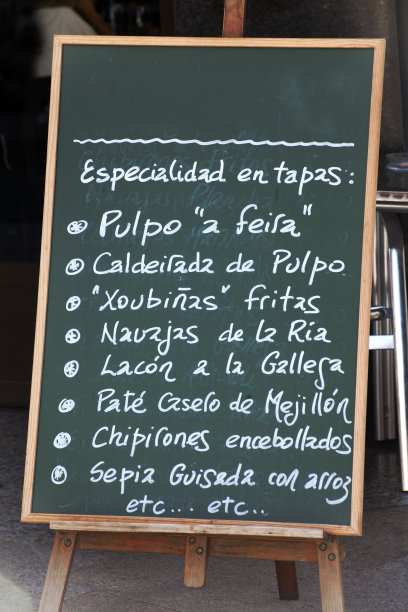 Especialidad en tapas:
Pulpo "a feira"
Caldeirada de Pulpo
"Xoubiñas" fritas
Navajas de la Ría
Lacón a la Gallega
Paté Casero de Mejillón
Chipirones encebollados
Sepia Guisada con arroz
etc... etc..